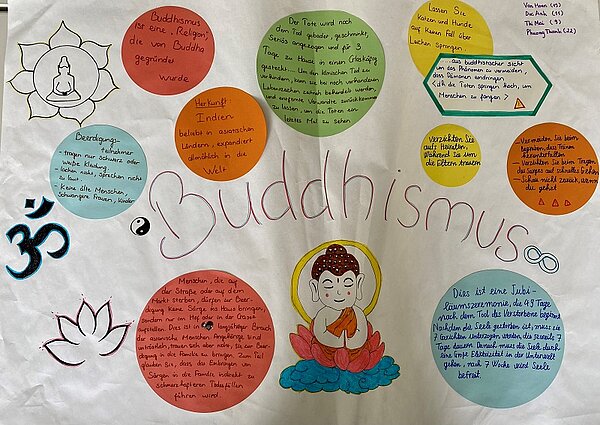 Buddhismus
ist eine „Religion“,
die von Buddha
gegründet
wurde.
Der Tote wird nach
dem Tod gebadet, geschminkt,
angezogen und für 3
Tage zu Hause in einen
gesteckt... Um den klinischen Tod zu
verhindern, kann sie bei noch vorhandenen
Lebenszeichen zeitnah behandelt werden,
und entfernte Verwandte zurückkommen
zu lassen, um die Toten ein
letztes Mal zu sehen.
Lassen Sie
Katzen und Hunde
auf keinen Fall über
Leichen springen.
Van Hoan (15)
Duc Anh (11)
Thi Mai (9)
Phuong Thanh (22)
...aus buddhistischer Sicht
um das Phänomen zu vermeiden,
dass Dämonen eindringen
(dh die Toten springen hoch, um
Menschen zu fangen?
Herkunft
Indien
beliebt in asiatischen
Ländern, expandiert
allmählich in die
Welt
Beerdigungs-
teilnehmer
- tragen nur schwarz oder
weiße Kleidung
- lachen nicht, sprechen nicht
zu laut
- keine alte Menschen,
Schwangere Frauen, Kinder
Verzichten Sie
aufs Heiraten,
während Sie um
die Eltern trauern
- Vermeiden Sie beim
Begräbnis, dass Tränen
herunterfallen
- Verzichten Sie beim Tragen
des Sarges auf schnelles Gehen
- Schau nicht zurück, wenn
du gehst
Buddhismus
ॐ
Menschen, die auf
der Straße oder auf dem
Markt sterben, dürfen zur Beer-
digung keine Särge ins Haus bringen,
sondern nur im Hof oder in der Gasse
aufstellen. Dies ist ein langjähriger Brauch
der asiatischen Menschen. Angehörige sind
wirklich
digung in die Familie zu bringen. Zum Teil
glauben sie, dass das Einbringen von
Särgen in die Familie indirekt zu
schmerzhafteren Todesfällen
führen wird.
Dies ist eine Jubi-
läumszeremonie, die 49 Tage
nach dem Tod des Verstorbenen beginnt.
Nachdem die Seele gestorben ist, muss sie
7 Gerichten unterzogen werden, die jeweils 7
Tage dauern. Danach muss die Seele durch
eine große Eiskliatität in der Unterwelt
gehen, nach 7 Woche wird Seele
befreit.